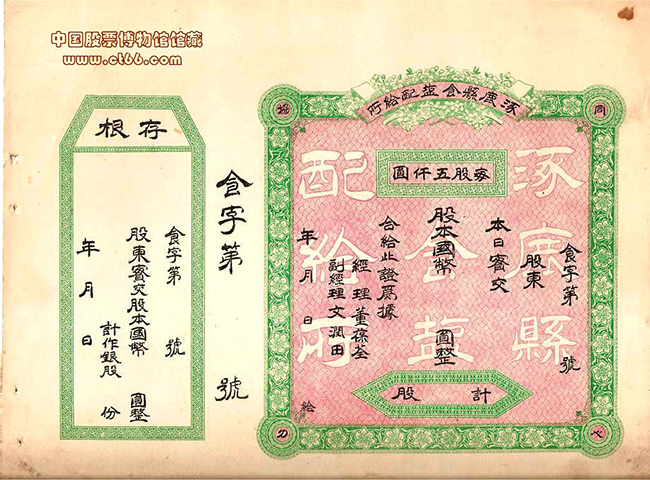 中国股票博物馆馆藏
www.ct66.com
涿鹿縣食鹽配給所
同
心
協
力
每股五仟圓
涿鹿縣
食鹽
配給所
食字第 號
股東
本日實交
股本國幣 圓整
合給此證爲據
經理 董葆荃
副經理 文潤田
年 月 日 給
計 股
食字第 號
存根
食字第 號
股東實交股本國幣 圓整
計作銀股 份
年 月 日